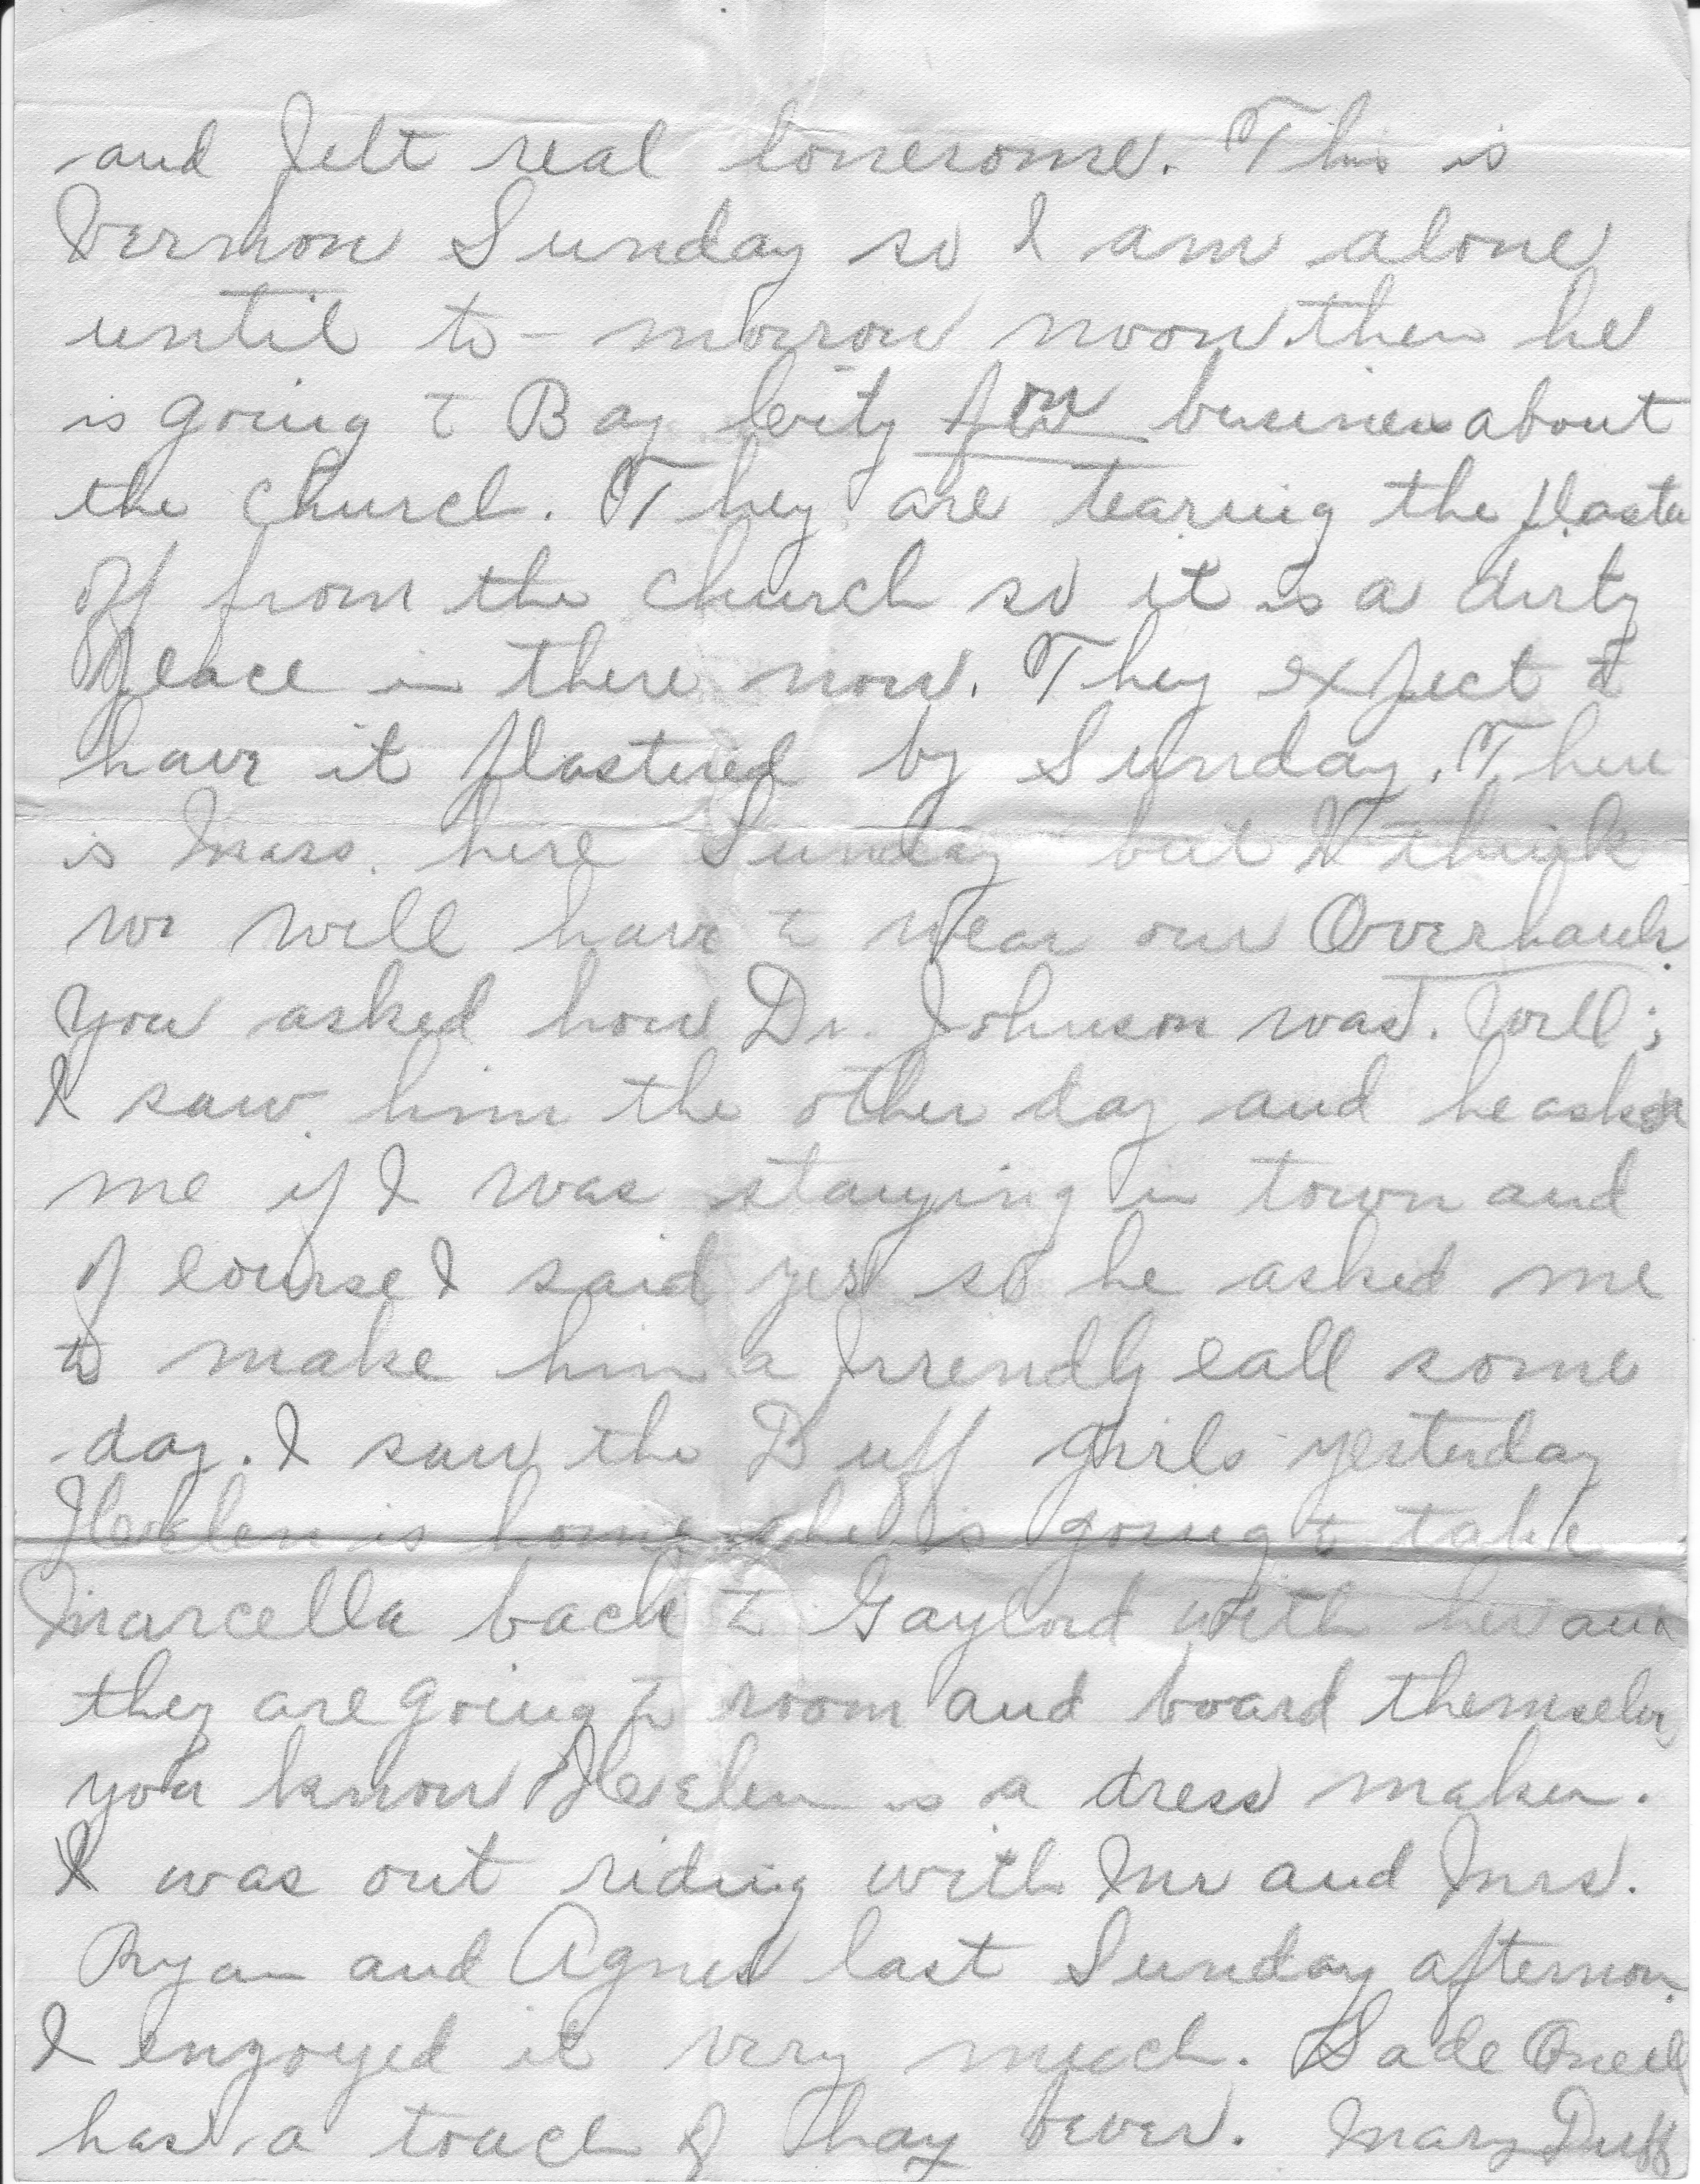 and felt real lonesome. This is
Vermon Sunday so I am alone
until to-morrow noon then he
is going to Bay City on business about
the church. They are tearing the plaster
off from the church so it is a dirty
place in there now. They expect to
have it plastered by Sunday. There
is Mass. here Sunday but I think
we will have to wear our Overhauls.
You asked how Dr. Johnson was. Well;
I saw him the other day and he asked
me if I was staying in town and
of course I said yes so he asked me
to make him a friendly call some
day. I saw the Duff girls yesterday
Helen is home she is going to take
Marcella back to Gaylord with her and
they are going to room and board themselves
you know Helen is a dress maker.
I was out riding with Mr and Mrs.
Ryan and Agnes last Sunday afternoon.
I enjoyed it very much. Sade Oneil
has a touch of Hay Fever. Mary Duff